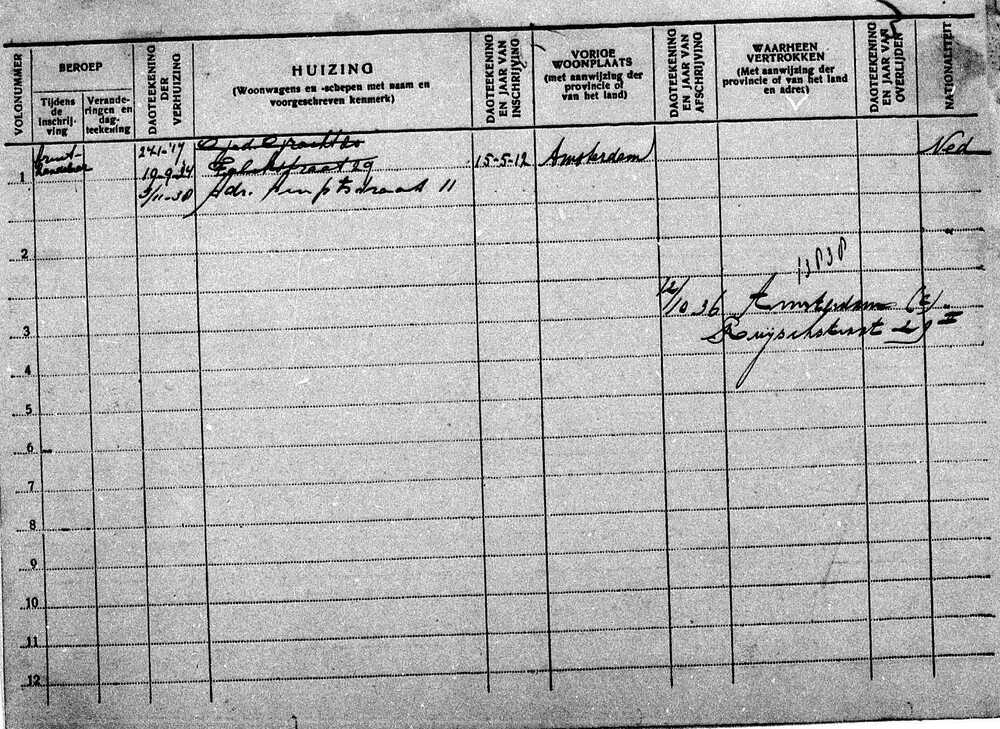 VOLGNUMMER
BEROEP
Tijdens de inschrijving
Veranderingen en dagteekening
DAGTEEKENING DER VERHUIZING
HUIZING
(Woonwagens en -schepen met naam en
voorgeschreven kenmerk)
DAGTEEKENING EN JAAR VAN INSCHRIJVING
VORIGE
WOONPLAATS
(met aanwijzing der
provincie of
van het land)
DAGTEEKENING EN JAAR VAN AFSCHRIJVING
WAARHEEN
VERTROKKEN
(Met aanwijzing der
provincie of van het land
en adres)
DAGTEEKENING EN JAAR VAN OVERLIJDEN
NATIONALITEIT
1
19-9-24
straat 29
15-5-12 Amsterdam
Ned
3/11-30
11
2
12/10-36 Amsterdam
3
Ruyschstraat 29 II
4
5
6
7
8
9
10
11
12